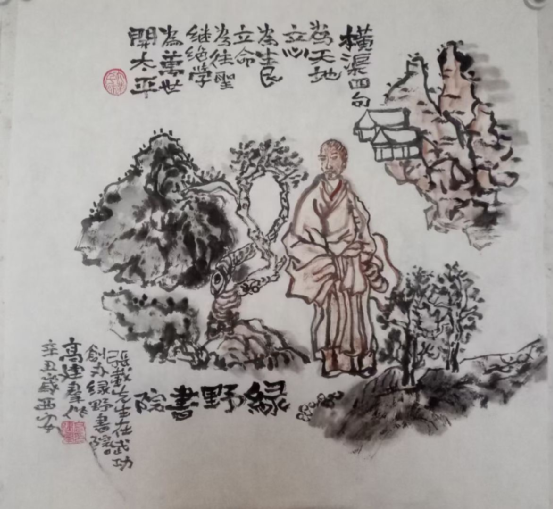 橫渠四句
為天地
立心
為生民
立命
為往聖
继绝学
為萬世
開太平
緑野書院
張載先生在武功
創办緑野書院
高建羣作
辛丑歲西安